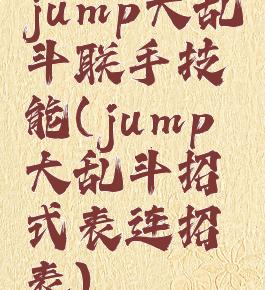 jump大乱
斗联手技
能(jump
大乱斗招
式表连招
表)